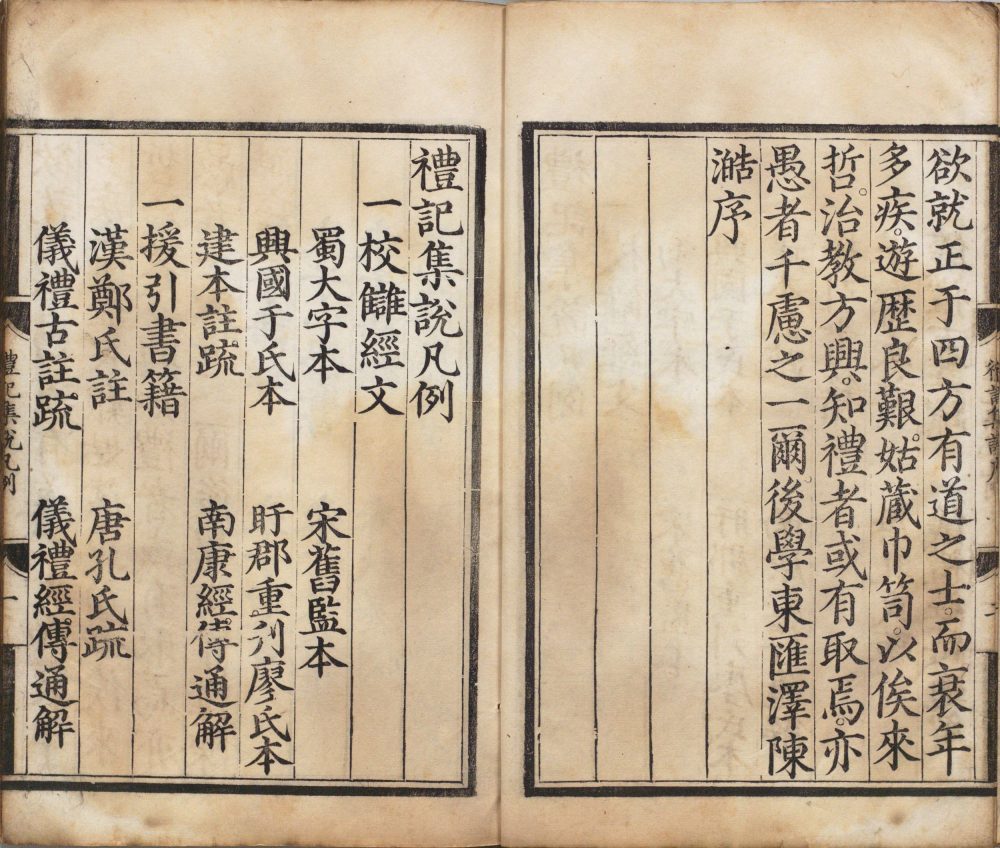 欲就正于四方有道之士。而衰年
多疾。遊歷良艱。姑藏巾笥。以俟來
哲。治教方興。知禮者或有取焉。亦
愚者千慮之一爾。後學東匯澤陳
澔序
禮記集說凡例
一校讎經文
蜀大字本 宋舊監本
興國于氏本 盱郡重刋廖氏本
建本註疏 南康經傳通解
一援引書籍
漢鄭氏註 唐孔氏疏
儀禮古註疏 儀禮經傳通解
禮記集說凡例 一